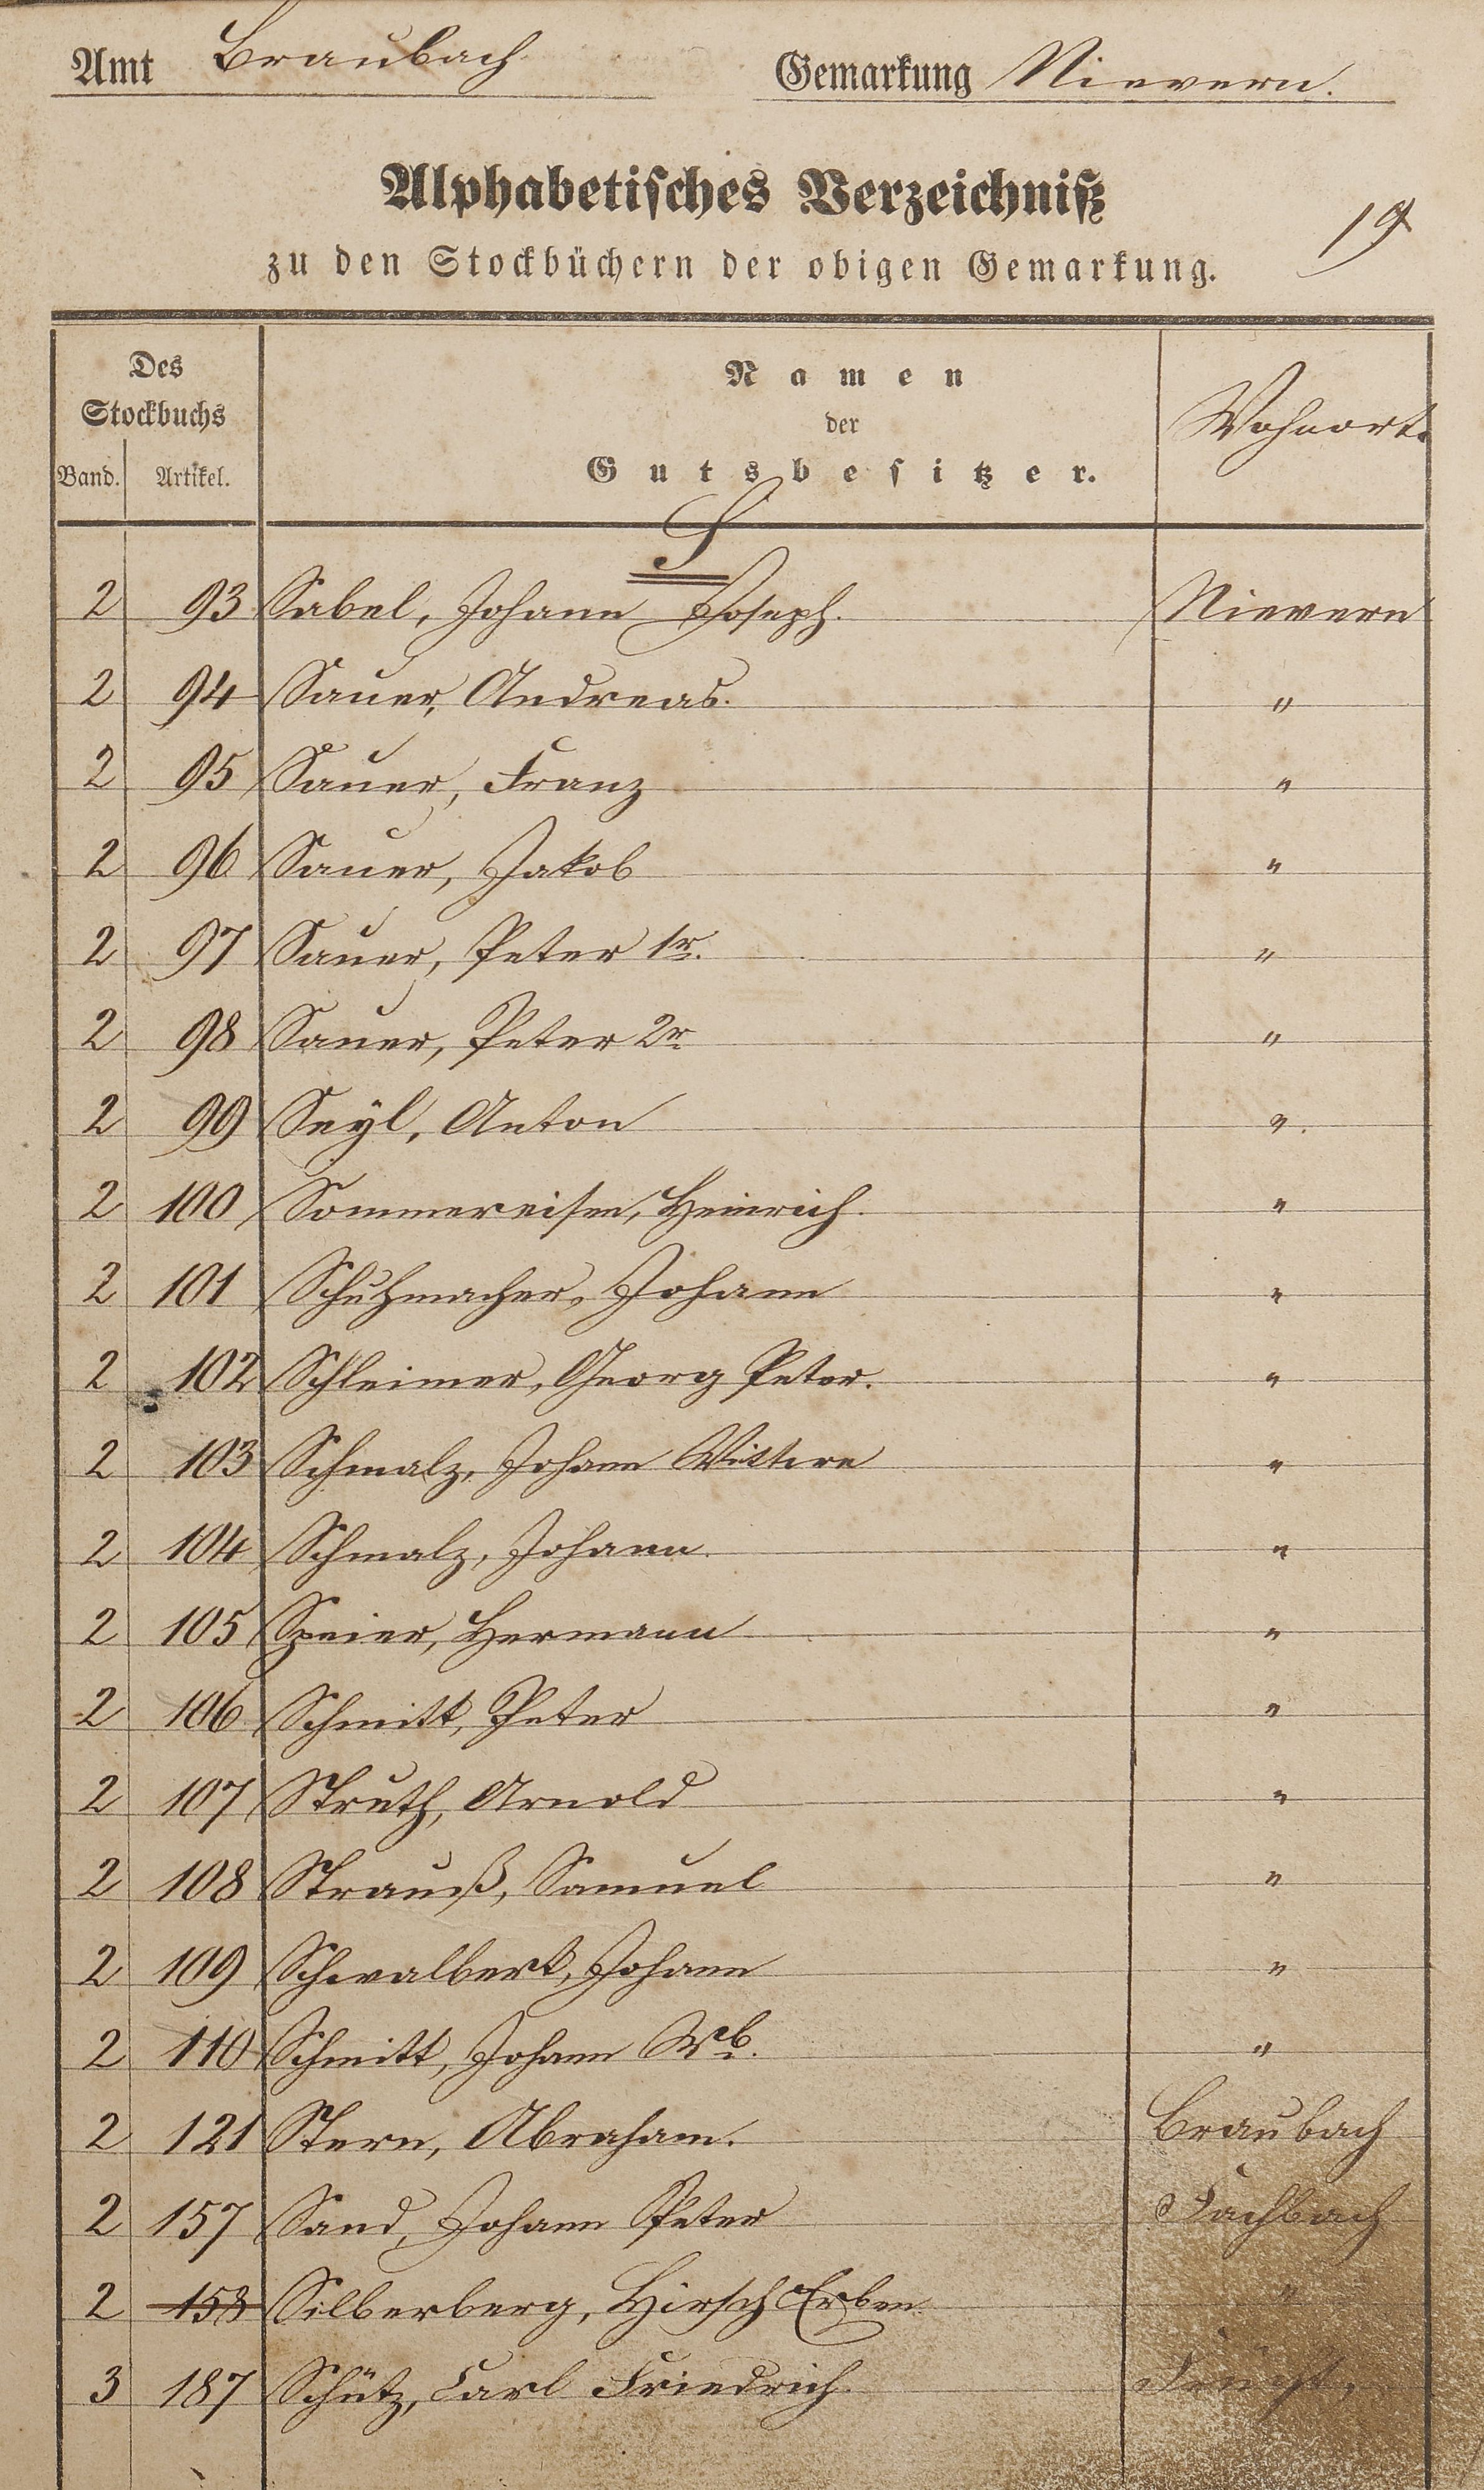 Amt Braubach Gemarkung Nievern.
Alphabetisches Verzeichniß
19
zu den Stockbüchern der obigen Gemarkung.
Des Stockbuchs
Band. Artikel.
Namen
der
Gutsbesitzer.
Wohnort.
S
2 93 Sabel, Johann Joseph. Nievern
2 94 Sauer, Andreas. "
2 95 Sauer, Franz "
2 96 Sauer, Jakob "
2 97 Sauer, Peter 1r. "
2 98 Sauer, Peter 2r "
2 99 Seyl, Anton ".
2 100 Sommereisen, Heinrich. "
2 101 Schuhmacher, Johann "
2 102 Schleimer, Georg Peter. "
2 103 Schmalz, Johann Wittwe "
2 104 Schmalz, Johann. "
2 105 Speier, Hermann "
2 106 Schmitt, Peter "
2 107 Struth, Arnold "
2 108 Strauß, Samuel "
2 109 Schwalbert, Johann "
2 110 Schmitt, Johann Wb. "
2 121 Stern, Abraham. Braubach
2 157 Sand, Johann Peter Fachbach
2 158 Silberberg, Hirsch Erben "
3 187 Schütz, Carl Friedrich.